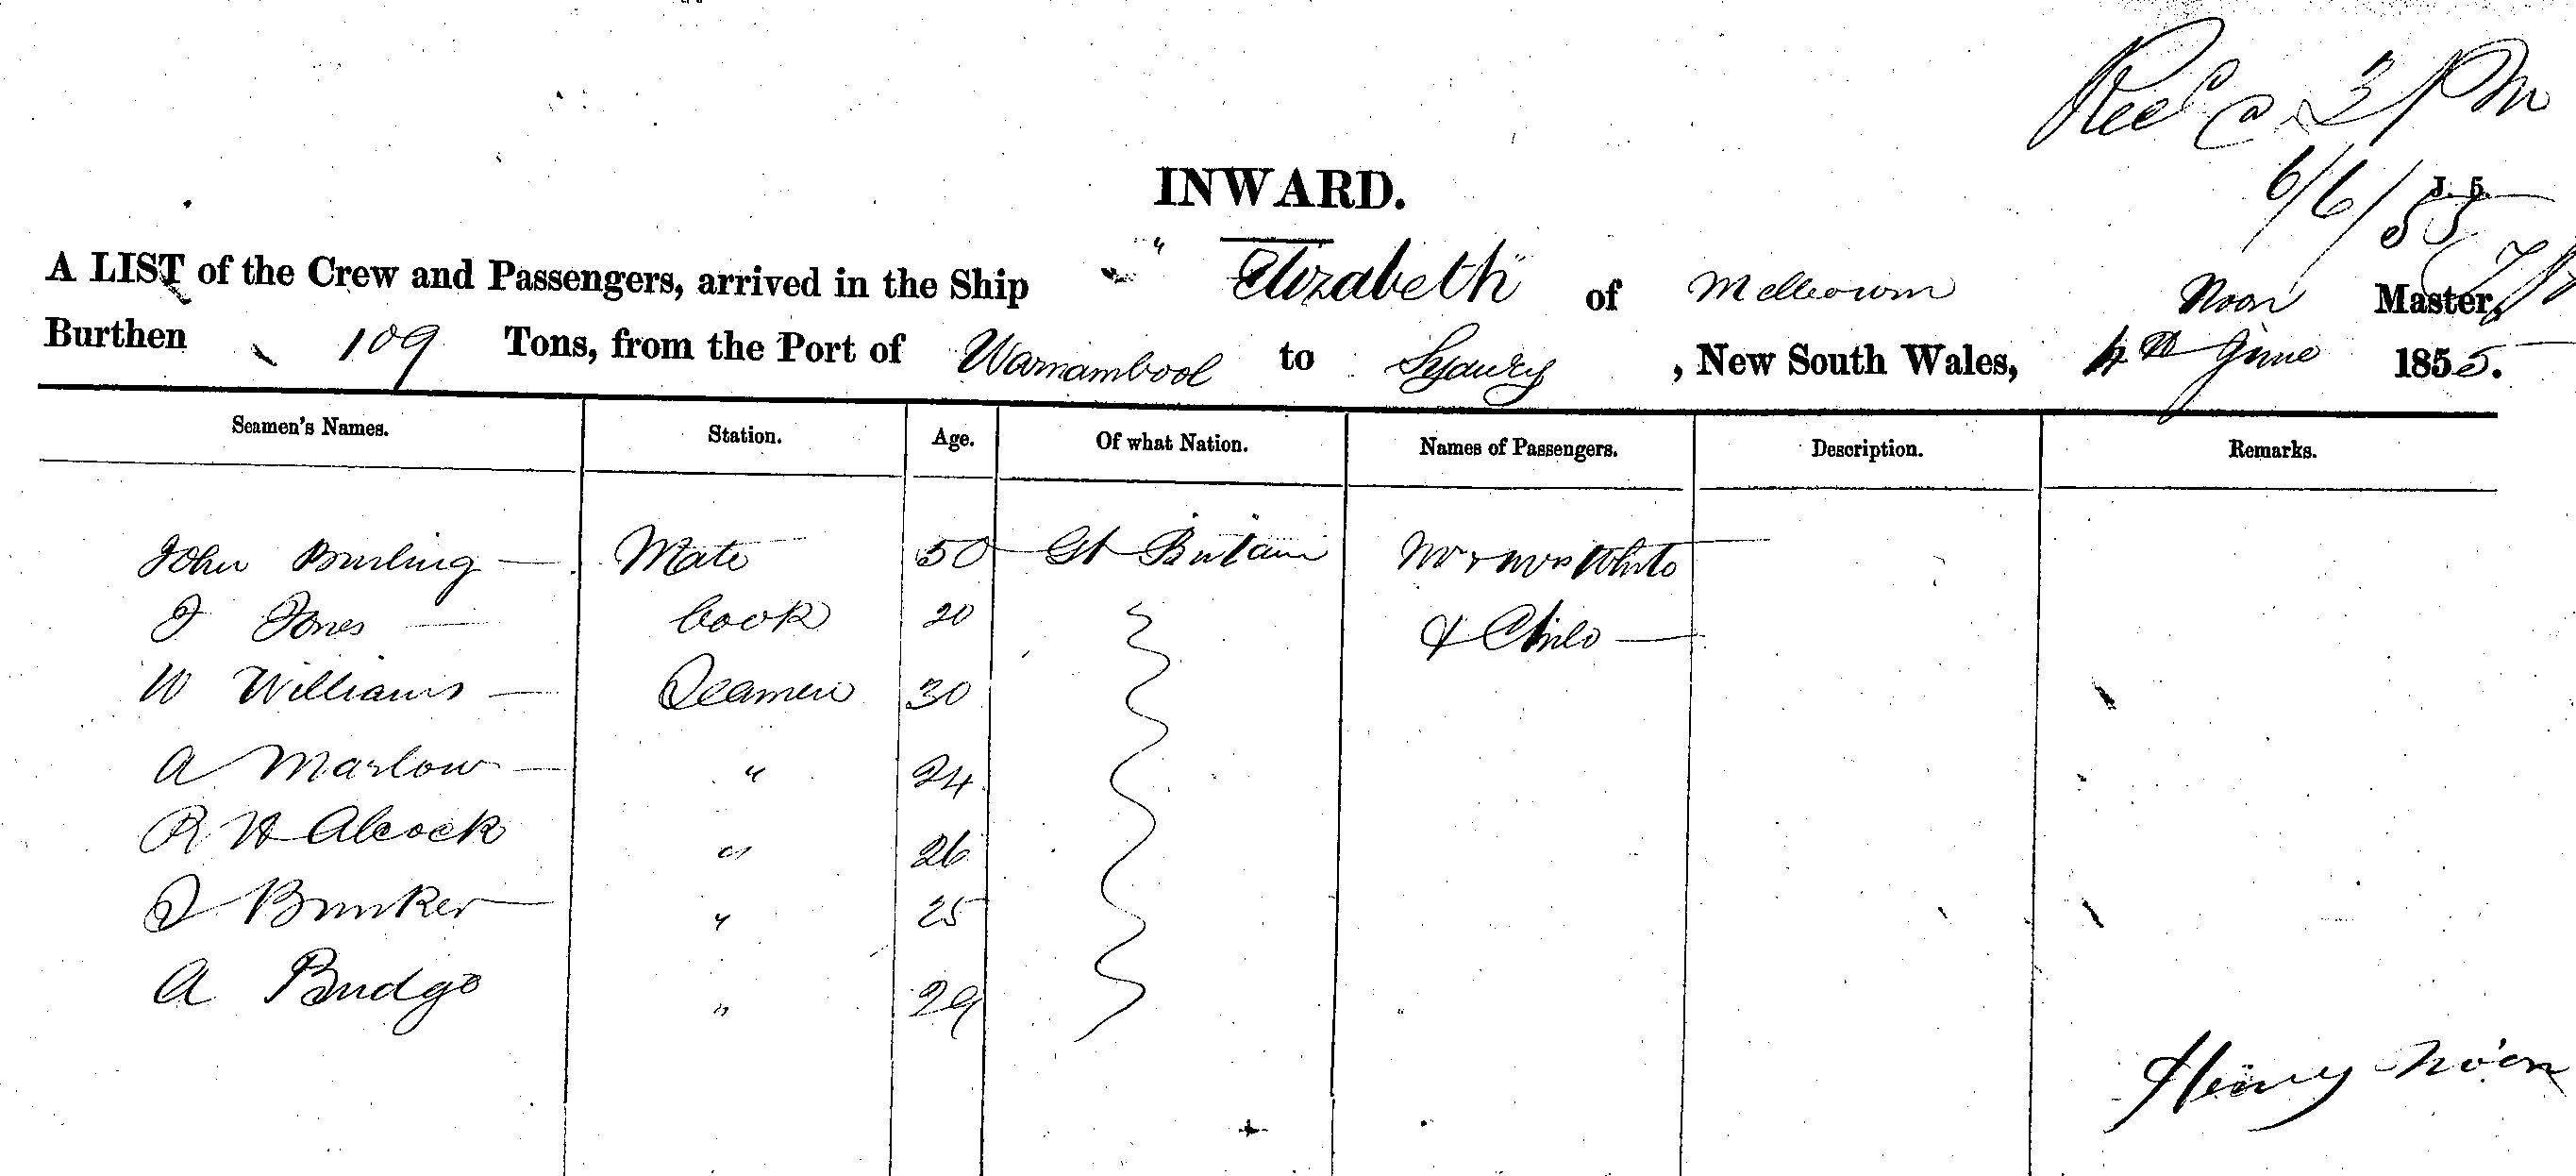 Recd @ 3 PM
6/6/55
J. 5.
INWARD.
A LIST of the Crew and Passengers, arrived in the Ship " Elizabeth " of Melbourn Noon Master,
Burthen 109 Tons, from the Port of Warnambool to Sydney , New South Wales, 4th June 1855.
Seamen's Names. Station. Age. Of what Nation. Names of Passengers. Description. Remarks.
John Burling Mate 50 Gt Britain Mr & Mrs White
J Jones Cook 20 & Child
W Williams Seamen 30
A Marlow " 24
R H Alcock " 26
J Bunker " 25
A Budge " 29
Henry Noon